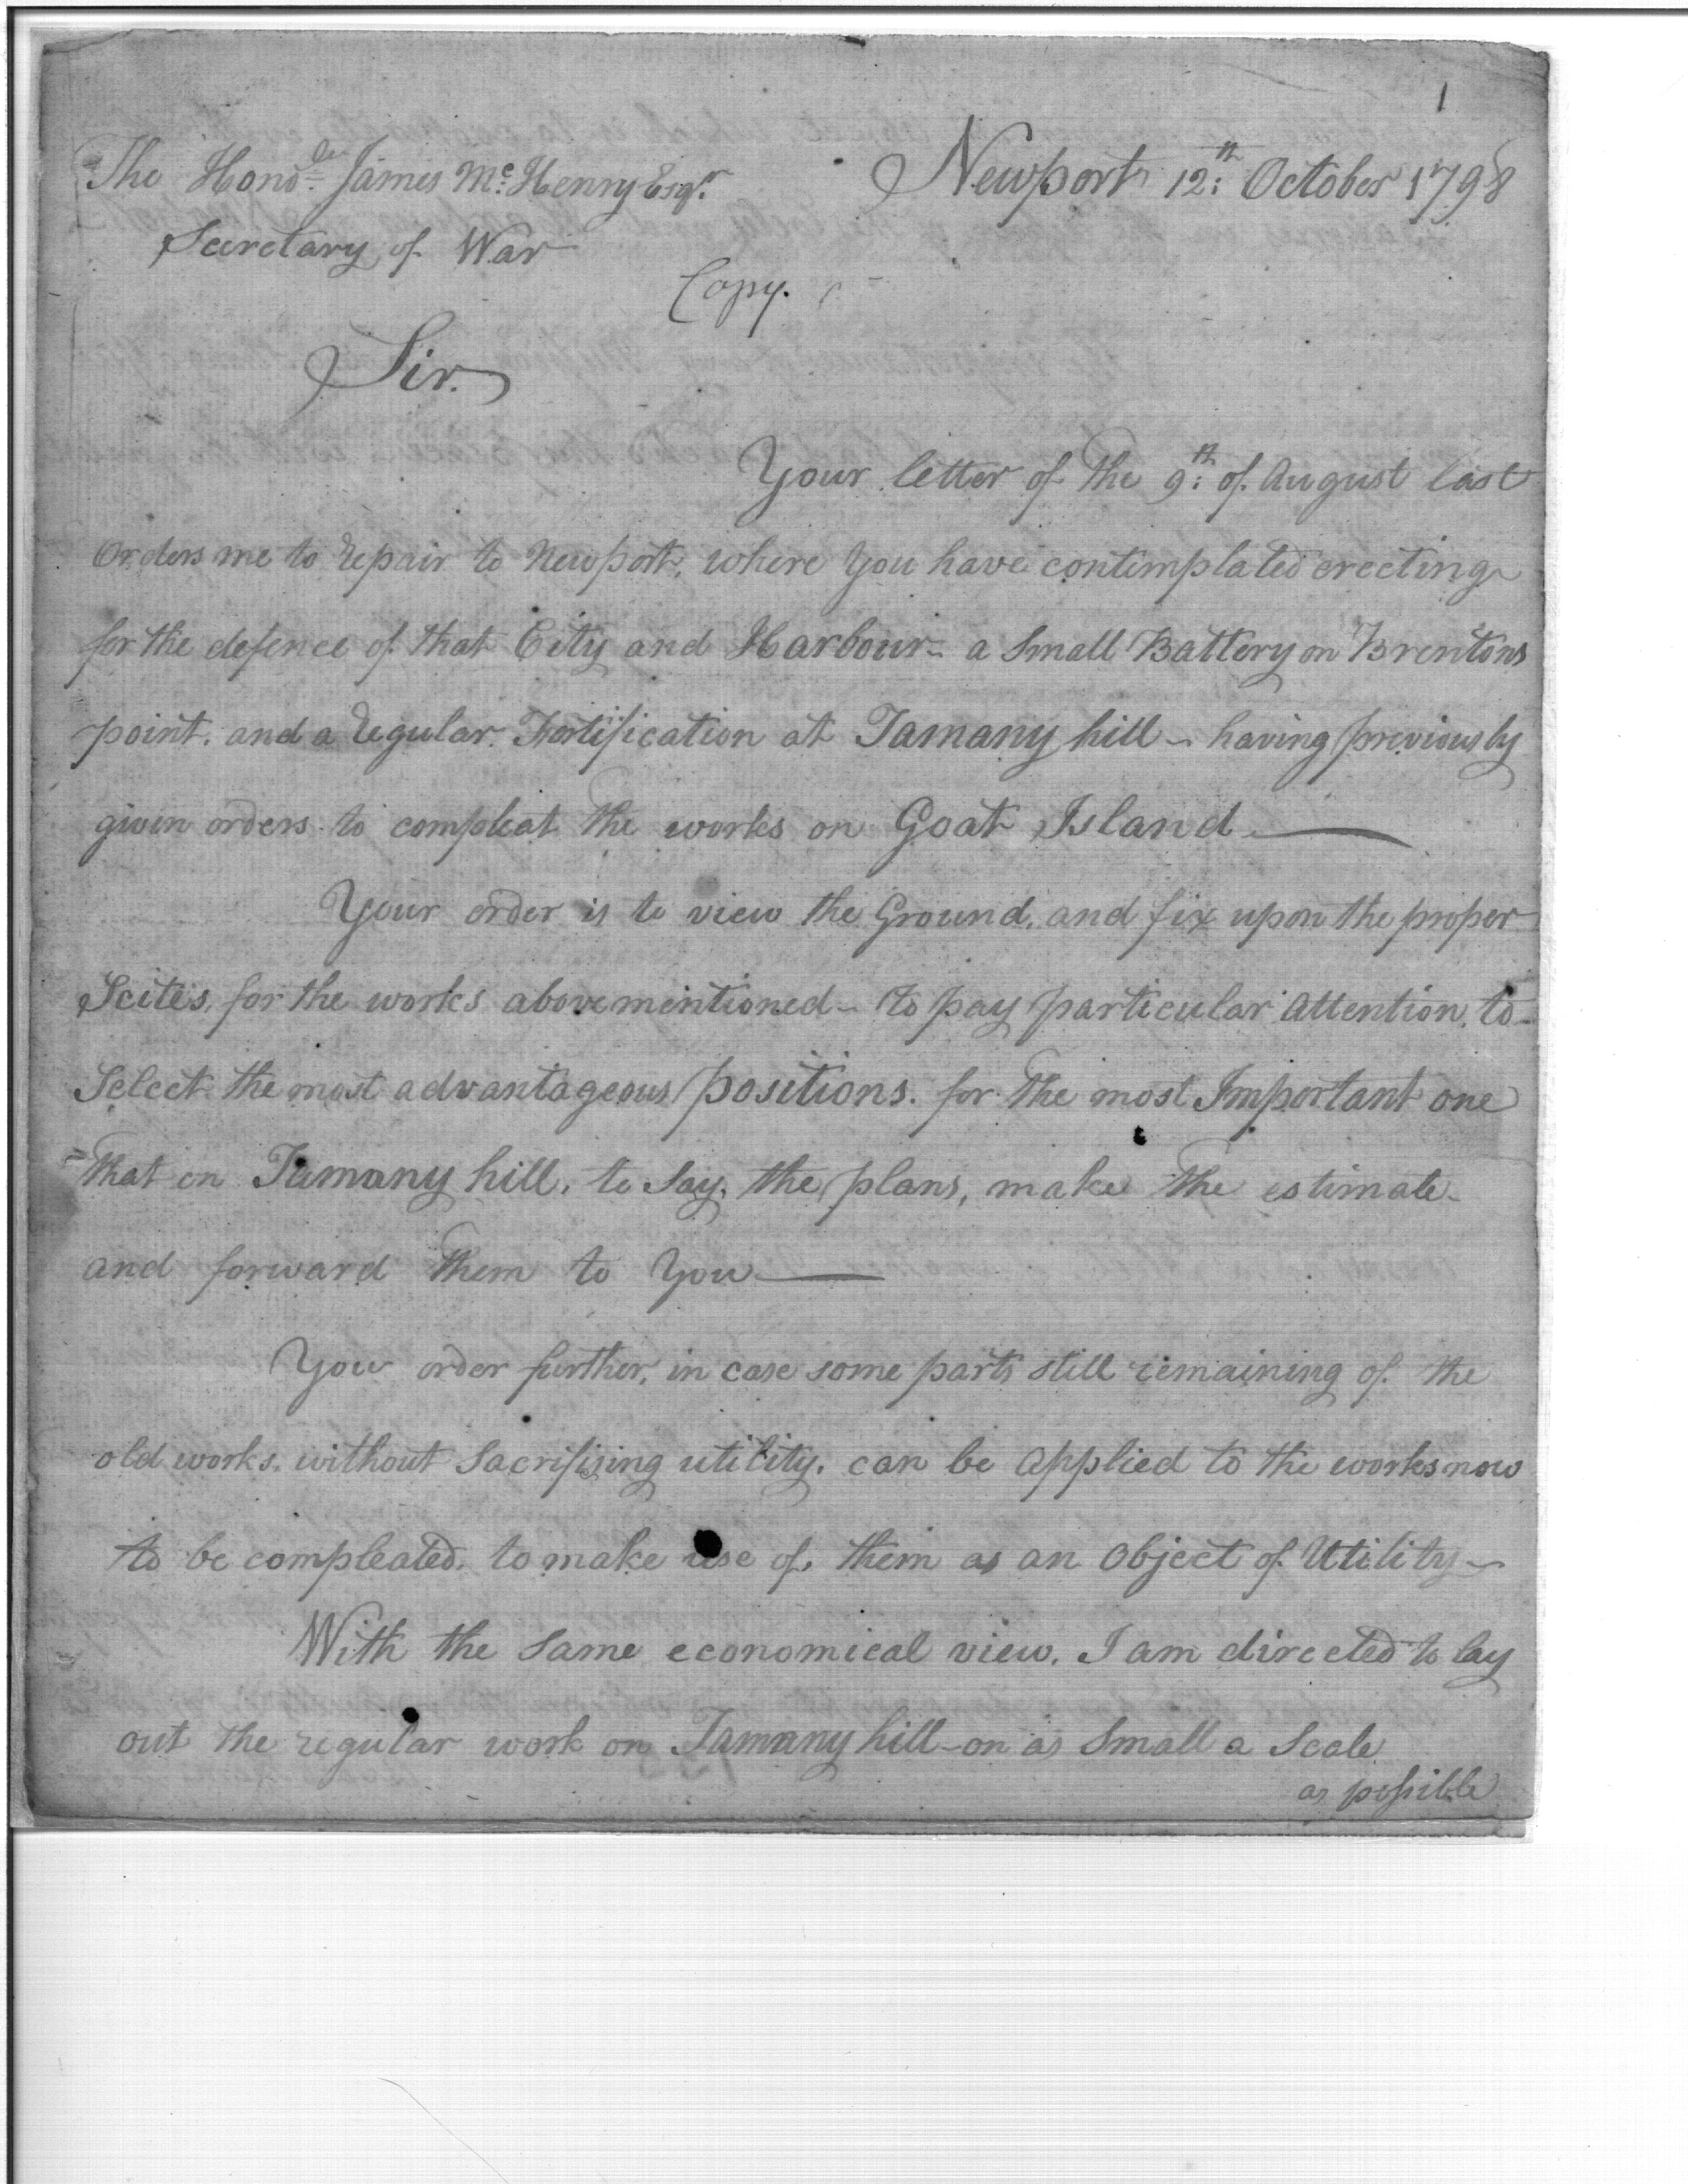 1
The Honoble James Mc Henry Esqr. Newport 12th October 1798
Secretary of War
Copy.
Sir.
Your letter of the 9th of August last
Orders me to repair to Newport, where You have contemplated erecting
for the defence of that City and Harbour - a Small Battery on Brentons
point, and a regular Fortification at Tamany hill - having previously
given orders to compleat the works on Goat Island
Your order is to view the Ground, and fix upon the proper
Scites, for the works abovementioned - to pay particular Attention, to
Select the most advantageous positions. for the most Important one
that on Tamany hill, to Say, the plans, make the estimate
and forward them to You
You order further, in case some parts still remaining of the
old works, without Sacrifising utility, can be applied to the works now
to be compleated, to make use of them as an Object of Utility -
With the Same economical view, I am directed to lay
out the regular work on Tamany hill - on as Small a Scale
as possible